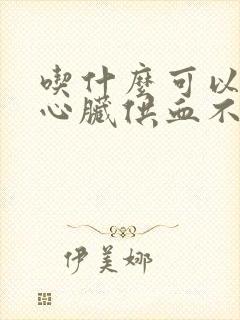 喫什麼可以
心臟供血不
伊美娜